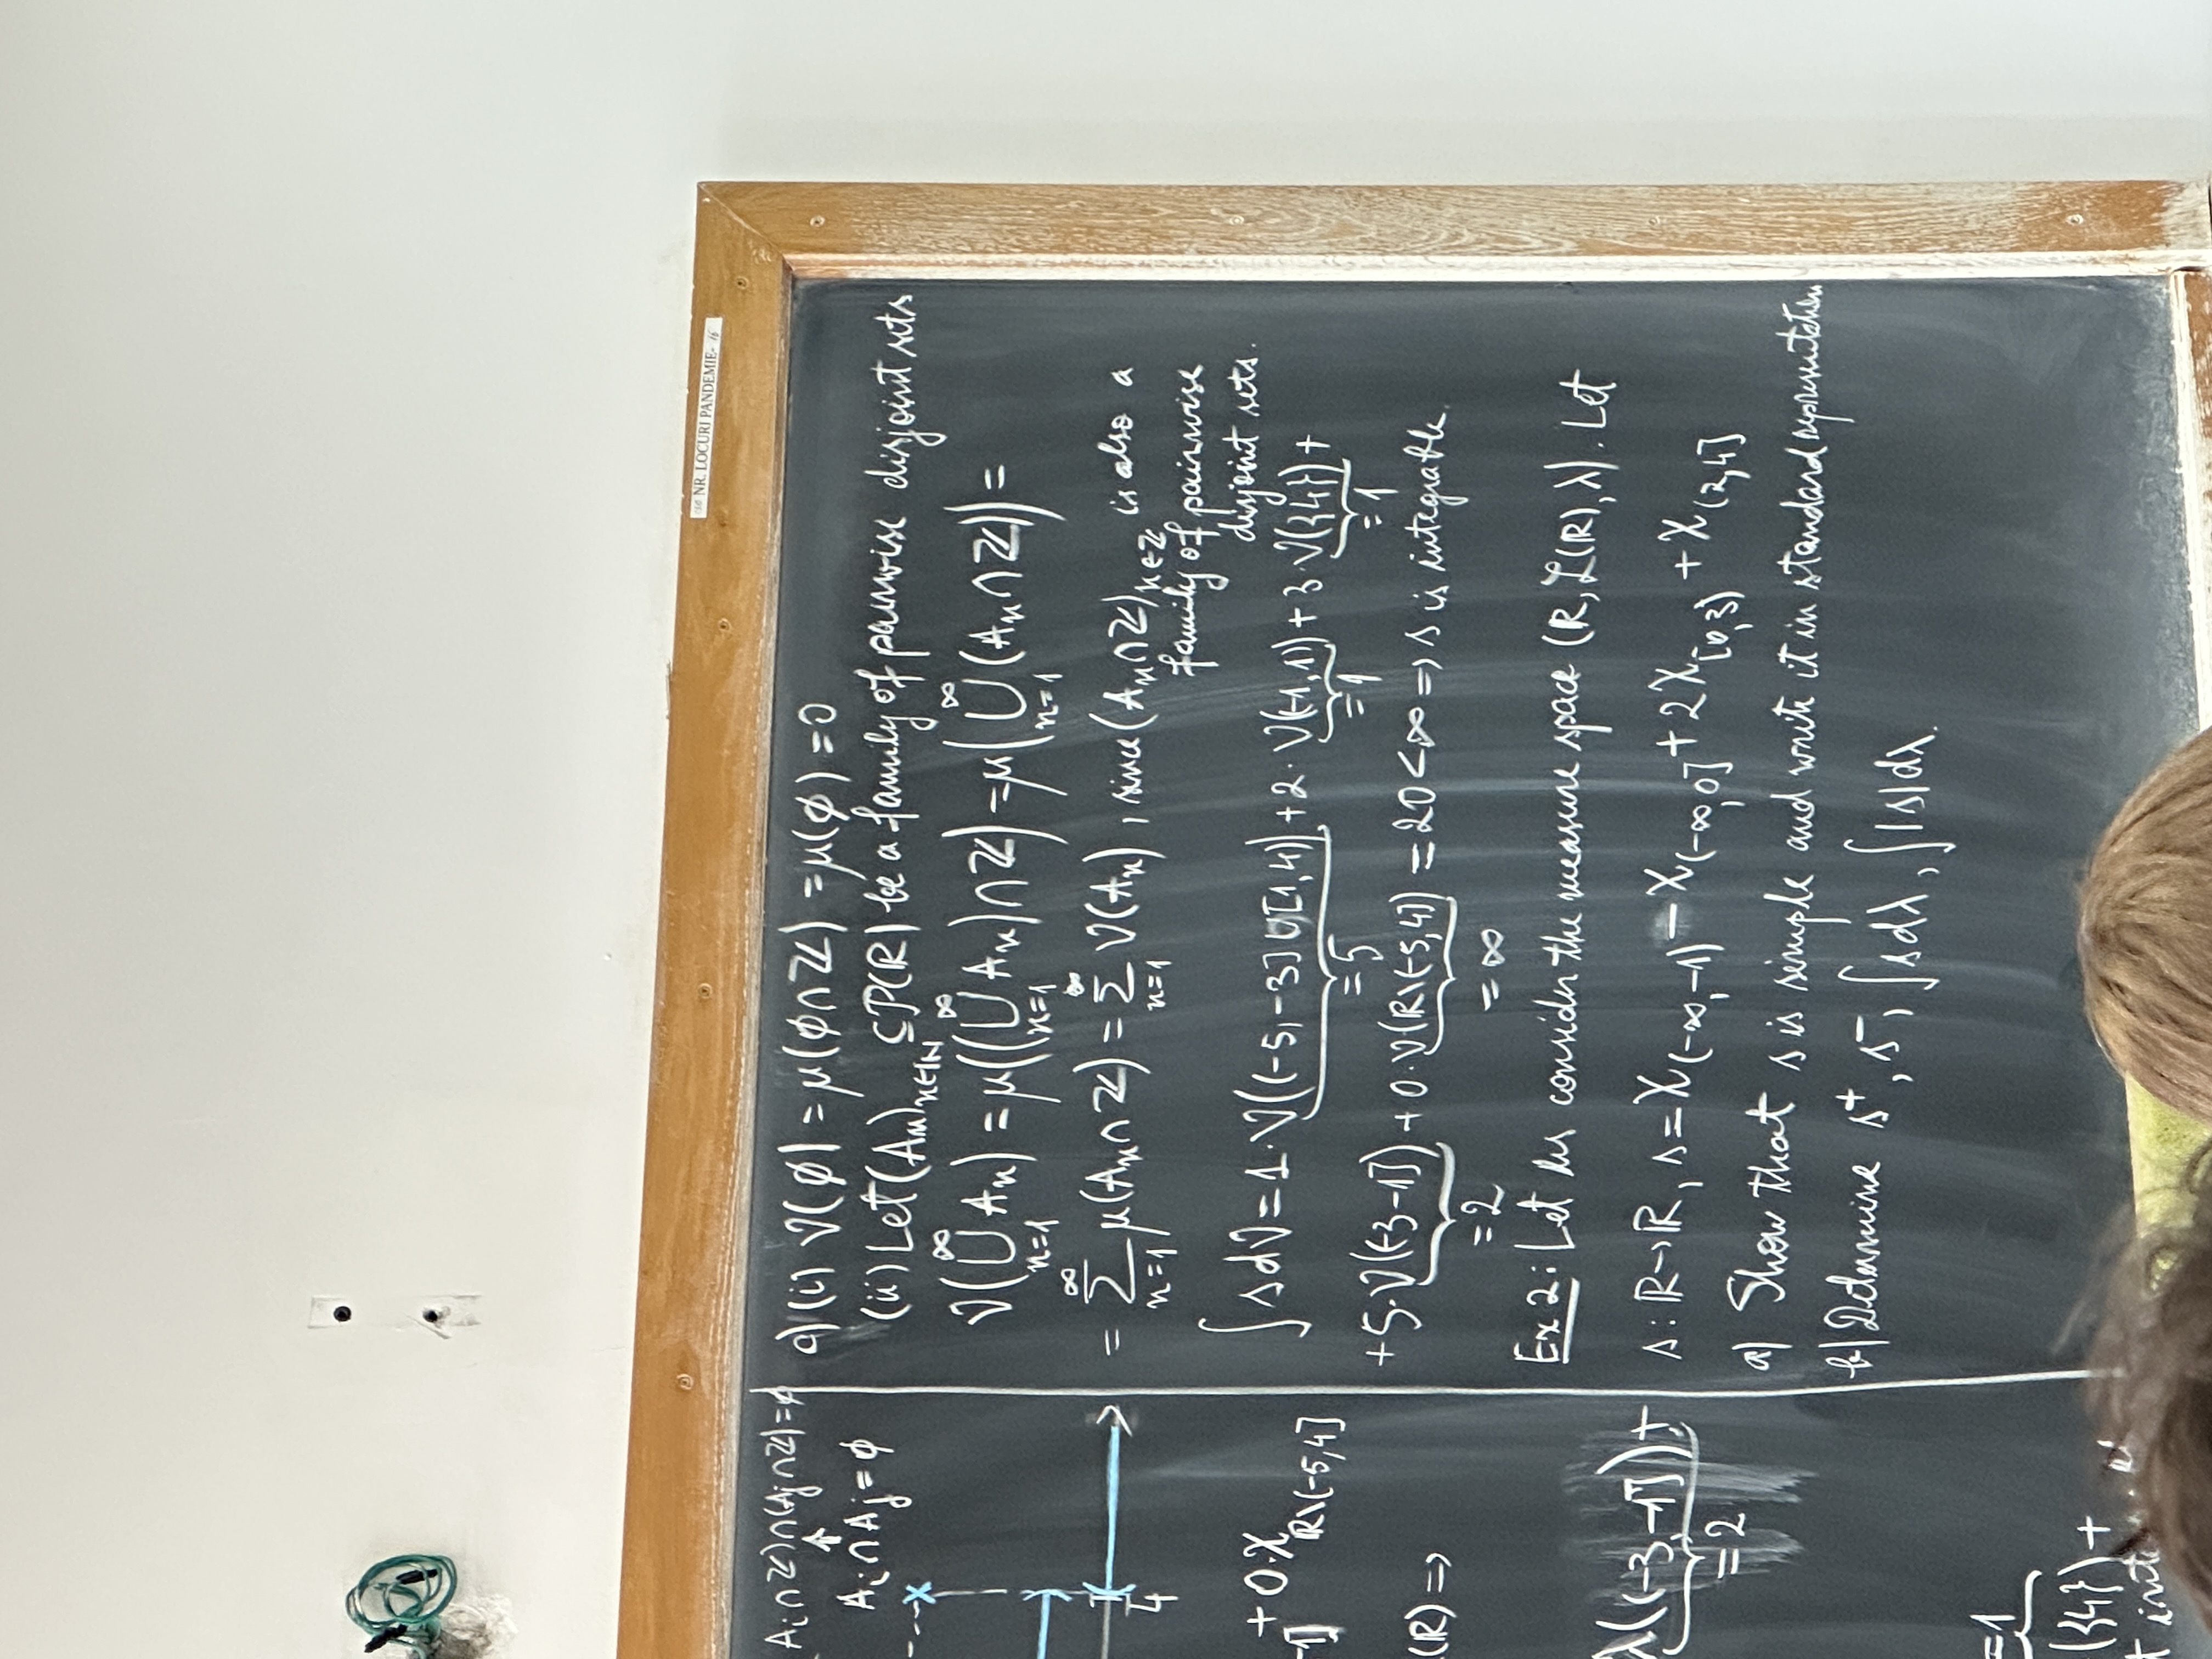 NR. LOCURI PANDEMIE- 16
A_i∩ℤ)∩(A_j∩ℤ)=∅
↑
A_i∩A_j=∅
4
+0·χ_{ℝ\(-5,4]}
-1]
(ℝ) ⇒
λ((-3,-1])+
=2
=1
({4})+
c) (i) ν(∅) = μ(∅∩ℤ) = μ(∅) = 0
(ii) Let (A_n)_{n∈ℕ} ⊆ P(ℝ) be a family of pairwise disjoint sets
ν(⋃_{n=1}^∞ A_n) = μ((⋃_{n=1}^∞ A_n)∩ℤ) = μ(⋃_{n=1}^∞ (A_n∩ℤ)) =
= ∑_{n=1}^∞ μ(A_n∩ℤ) = ∑_{n=1}^∞ ν(A_n), since (A_n∩ℤ)_{n∈ℤ} is also a
family of pairwise
disjoint sets.
∫s dν = 1·ν((-5,-3]∪[1,4)) + 2·ν((-1,1)) + 3·ν({4}) +
=5 =1 =1
+5·ν((-3-1]) + 0·ν(ℝ\(-5,4]) = 20 < ∞ ⇒ s is integrable.
=2 =∞
Ex 2: Let us consider the measure space (ℝ, ℒ(ℝ), λ). Let
s: ℝ→ℝ, s = χ_{(-∞,-1)} - χ_{(-∞,0]} + 2χ_{[0,3)} + χ_{(2,4]}
a) Show that s is simple and write it in standard representation
b) Determine s⁺, s⁻, ∫s dλ, ∫|s| dλ.